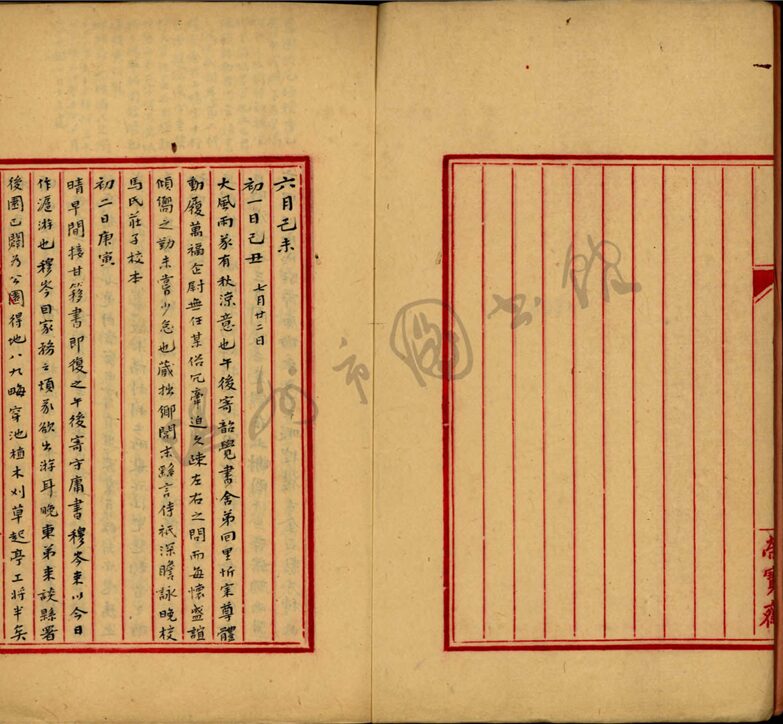 六月己未
初一日己丑 七月廿二日
大風雨家有秋涼意也午後寄韶覺書舍弟回里忻宋尊體
動履萬福企尉無任某俗冗牽迫久疎左右之問而每懷盛誼
傾嚮之勤未嘗少怠也藏拙鄉閭未繇言侍祇深瞻詠晚校
馬氏莊子校本
初二日庚寅
晴早間接甘簃書即復之午後寄守庸書穆岑來以今日
作滬游也穆岑因家務之煩欲出游耳晚東弟來談縣署
後園已闢為公園得地八九畮穿池植木刈草起亭工將半矣
榮寶齋
市圖書館